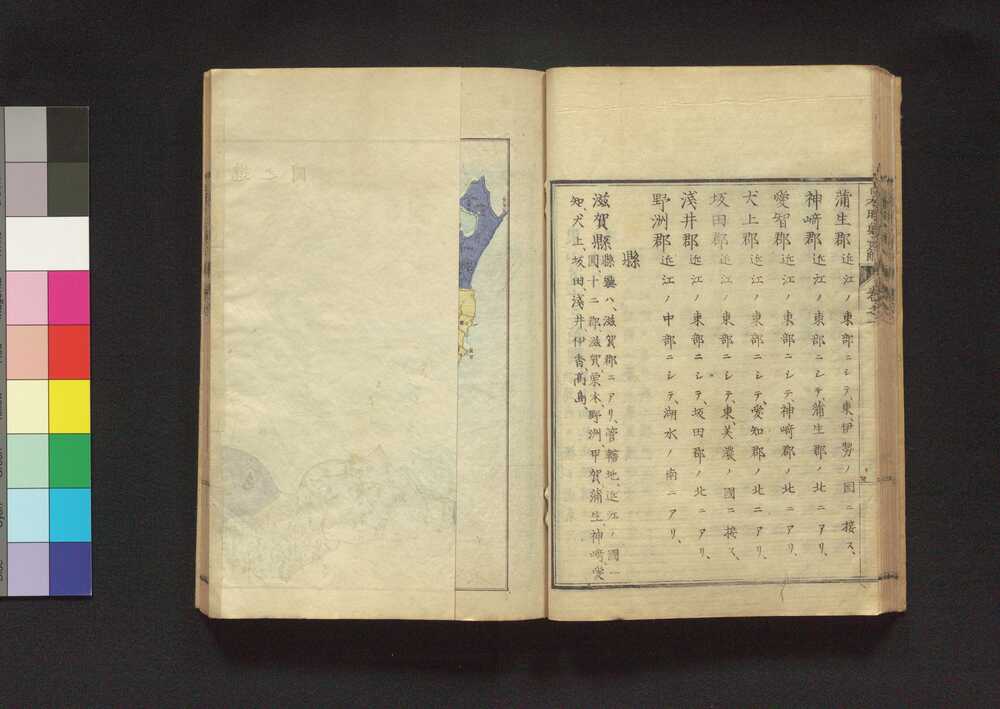 蒲生郡近江ノ東部ニシテ、東、伊勢ノ國ニ接ス、
神﨑郡近江ノ東部ニシテ、蒲生郡ノ北ニアリ、
愛智郡近江ノ東部ニシテ、神﨑郡ノ北ニアリ、
犬上郡近江ノ東部ニシテ、愛知郡ノ北ニアリ、
坂田郡近江ノ東部ニシテ、東、美濃ノ國ニ接ス、
淺井郡近江ノ東部ニシテ、坂田郡ノ北ニアリ、
野洲郡近江ノ中部ニシテ、湖水ノ南ニアリ、
縣
滋賀縣縣廳ハ、滋賀郡ニアリ、管轄地、近江ノ國一
圓、十二郡、滋賀、栗本、野洲、甲賀、蒲生、神﨑、愛
知、犬上、坂田、淺井、伊香、高島、
卷之一